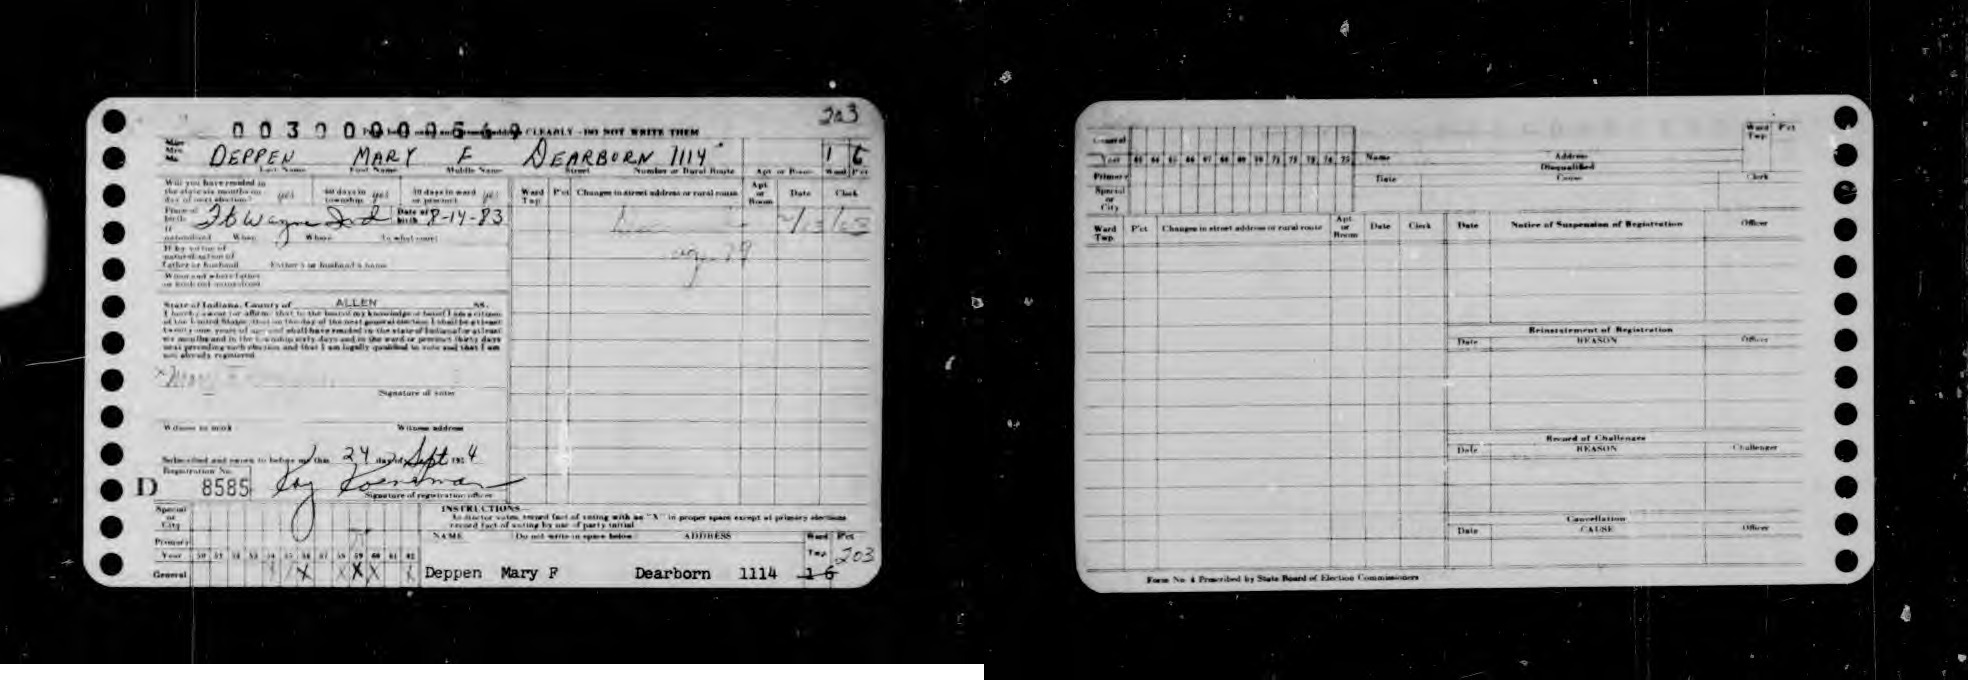 203
0030000056
CLEARLY - DO NOT WRITE THEM
Miss
Mrs.
Mr.
DEPPEN MARY F DEARBORN 1114 1 6
Last Name First Name Middle Name Street Number or Rural Route Apt or Room Ward P'ct
Will you have resided in the state six months on day of next election? yes 60 days in township yes 30 days in ward or precinct yes
Ward Twp. P'ct Changes in street address or rural route Apt. or Room Date Clerk
Place of birth Ft Wayne Ind Date of birth 8-14-83
If naturalized When Where To what court
If by virtue of naturalization of Father or husband Father's or husband's name
When and where father or husband naturalized
State of Indiana, County of ALLEN SS.
I hereby swear (or affirm) that to the best of my knowledge or belief I am a citizen
of the United States, that on the day of the next general election I shall be at least
twenty-one years of age and shall have resided in the state of Indiana for at least
six months and in the township sixty days and in the ward or precinct thirty days
next preceding such election and that I am legally qualified to vote and that I am
not already registered.
X Mary
Signature of voter
Witness to mark Witness address
Subscribed and sworn to before me this 24 day of Sept 1954
Registration No.
D 8585
Signature of registration officer
Special or City
INSTRUCTIONS
record fact of voting with an "X" in proper space except at primary elections
record fact of voting by use of party initial
Primary NAME Do not write in space below ADDRESS Ward Twp. P'ct
Year 50 51 52 53 54 55 56 57 58 59 60 61 62
203
General X X X Deppen Mary F Dearborn 1114 1 6
General
Year 63 64 65 66 67 68 69 70 71 72 73 74 75 Name Address Ward Twp. P'ct
Disqualified
Primary Date Cause Clerk
Special or City
Ward Twp. P'ct Changes in street address or rural route Apt. or Room Date Clerk Date Notice of Suspension of Registration Officer
Reinstatement of Registration
Date REASON Officer
Record of Challenges
Date REASON Challenger
Cancellation
Date CAUSE Officer
Form No. 4 Prescribed by State Board of Election Commissioners